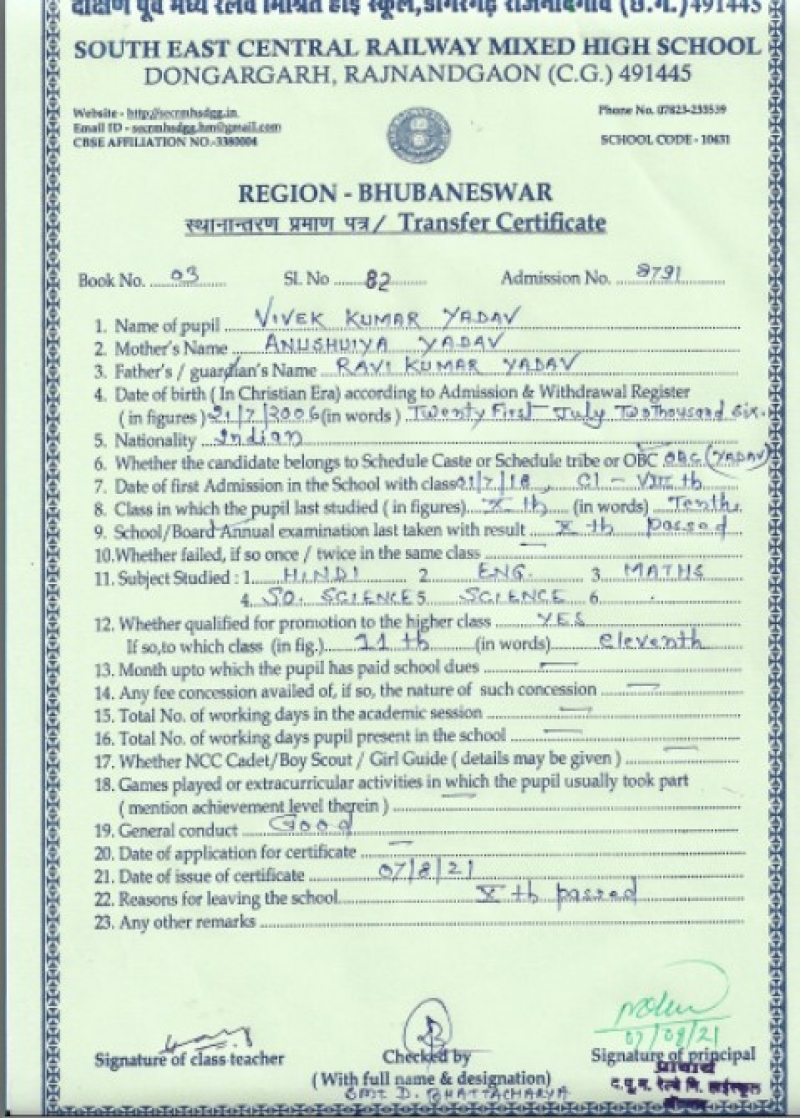 दक्षिण पूर्व मध्य रेलवे मिश्रित हाई स्कूल,डोंगरगढ़ राजनांदगांव (छ.ग.)491445
SOUTH EAST CENTRAL RAILWAY MIXED HIGH SCHOOL
DONGARGARH, RAJNANDGAON (C.G.) 491445
Website - http://secrmhsdgg.in
Phone No. 07823-233539
Email ID - secrmhsdgg.hm@gmail.com
CBSE AFFILIATION NO.-3380004
SCHOOL CODE - 10431
REGION - BHUBANESWAR
स्थानान्तरण प्रमाण पत्र / Transfer Certificate
Book No. 03 Sl. No 82 Admission No. 8791
1. Name of pupil VIVEK KUMAR YADAV
2. Mother's Name ANUSHUIYA YADAV
3. Father's / guardian's Name RAVI KUMAR YADAV
4. Date of birth ( In Christian Era) according to Admission & Withdrawal Register
( in figures ) 21/7/2006 (in words ) Twenty First July Twothousand Six.
5. Nationality Indian
6. Whether the candidate belongs to Schedule Caste or Schedule tribe or OBC OBC (YADAV)
7. Date of first Admission in the School with class 01/7/18, Cl - VIII th
8. Class in which the pupil last studied ( in figures) X th (in words) Tenth.
9. School/Board Annual examination last taken with result X th passed
10.Whether failed, if so once / twice in the same class —
11. Subject Studied : 1. HINDI 2 ENG. 3 MATHS
4. SO. SCIENCE 5 SCIENCE 6 .
12. Whether qualified for promotion to the higher class YES
If so,to which class (in fig.) 11 th (in words) eleventh
13. Month upto which the pupil has paid school dues —
14. Any fee concession availed of, if so, the nature of such concession —
15. Total No. of working days in the academic session —
16. Total No. of working days pupil present in the school —
17. Whether NCC Cadet/Boy Scout / Girl Guide ( details may be given ) —
18. Games played or extracurricular activities in which the pupil usually took part
( mention achievement level therein ) —
19. General conduct Good
20. Date of application for certificate —
21. Date of issue of certificate 07/8/21
22. Reasons for leaving the school X th passed
23. Any other remarks
07/08/21
Signature of class teacher Checked by Signature of principal
(With full name & designation)
प्राचार्य
द.पू.म. रेल्वे मि. हाईस्कूल
SMT D. BHATTACHARYA